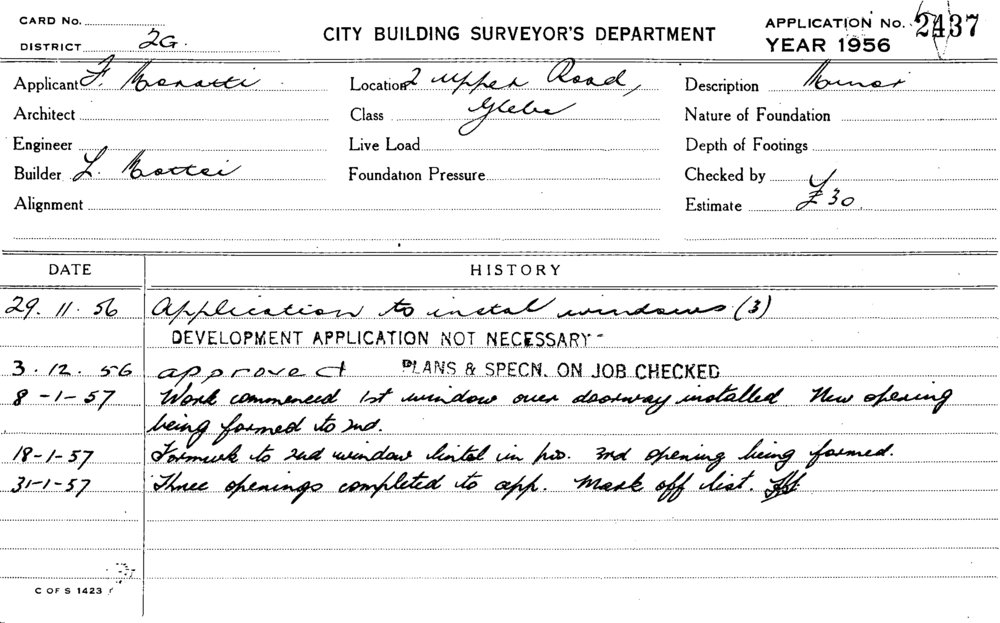 CARD No.
DISTRICT 2G.
CITY BUILDING SURVEYOR'S DEPARTMENT
APPLICATION No. 2437
YEAR 1956
Applicant F. Location 2 Upper Road, Description Minor
Architect Class Glebe Nature of Foundation
Engineer Live Load Depth of Footings
Builder L. Mattei Foundation Pressure Checked by
Alignment Estimate £30
DATE HISTORY
29. 11. 56 Application to instal windows (3)
DEVELOPMENT APPLICATION NOT NECESSARY
3. 12. 56 approved PLANS & SPECN. ON JOB CHECKED
8-1-57 Work commenced 1st window over doorway installed New opening
being formed to 2nd.
18-1-57 Formwk to 2nd window lintel in pos. 3rd opening being formed.
31-1-57 Three openings completed to app. Mark off list.
C OF S 1423